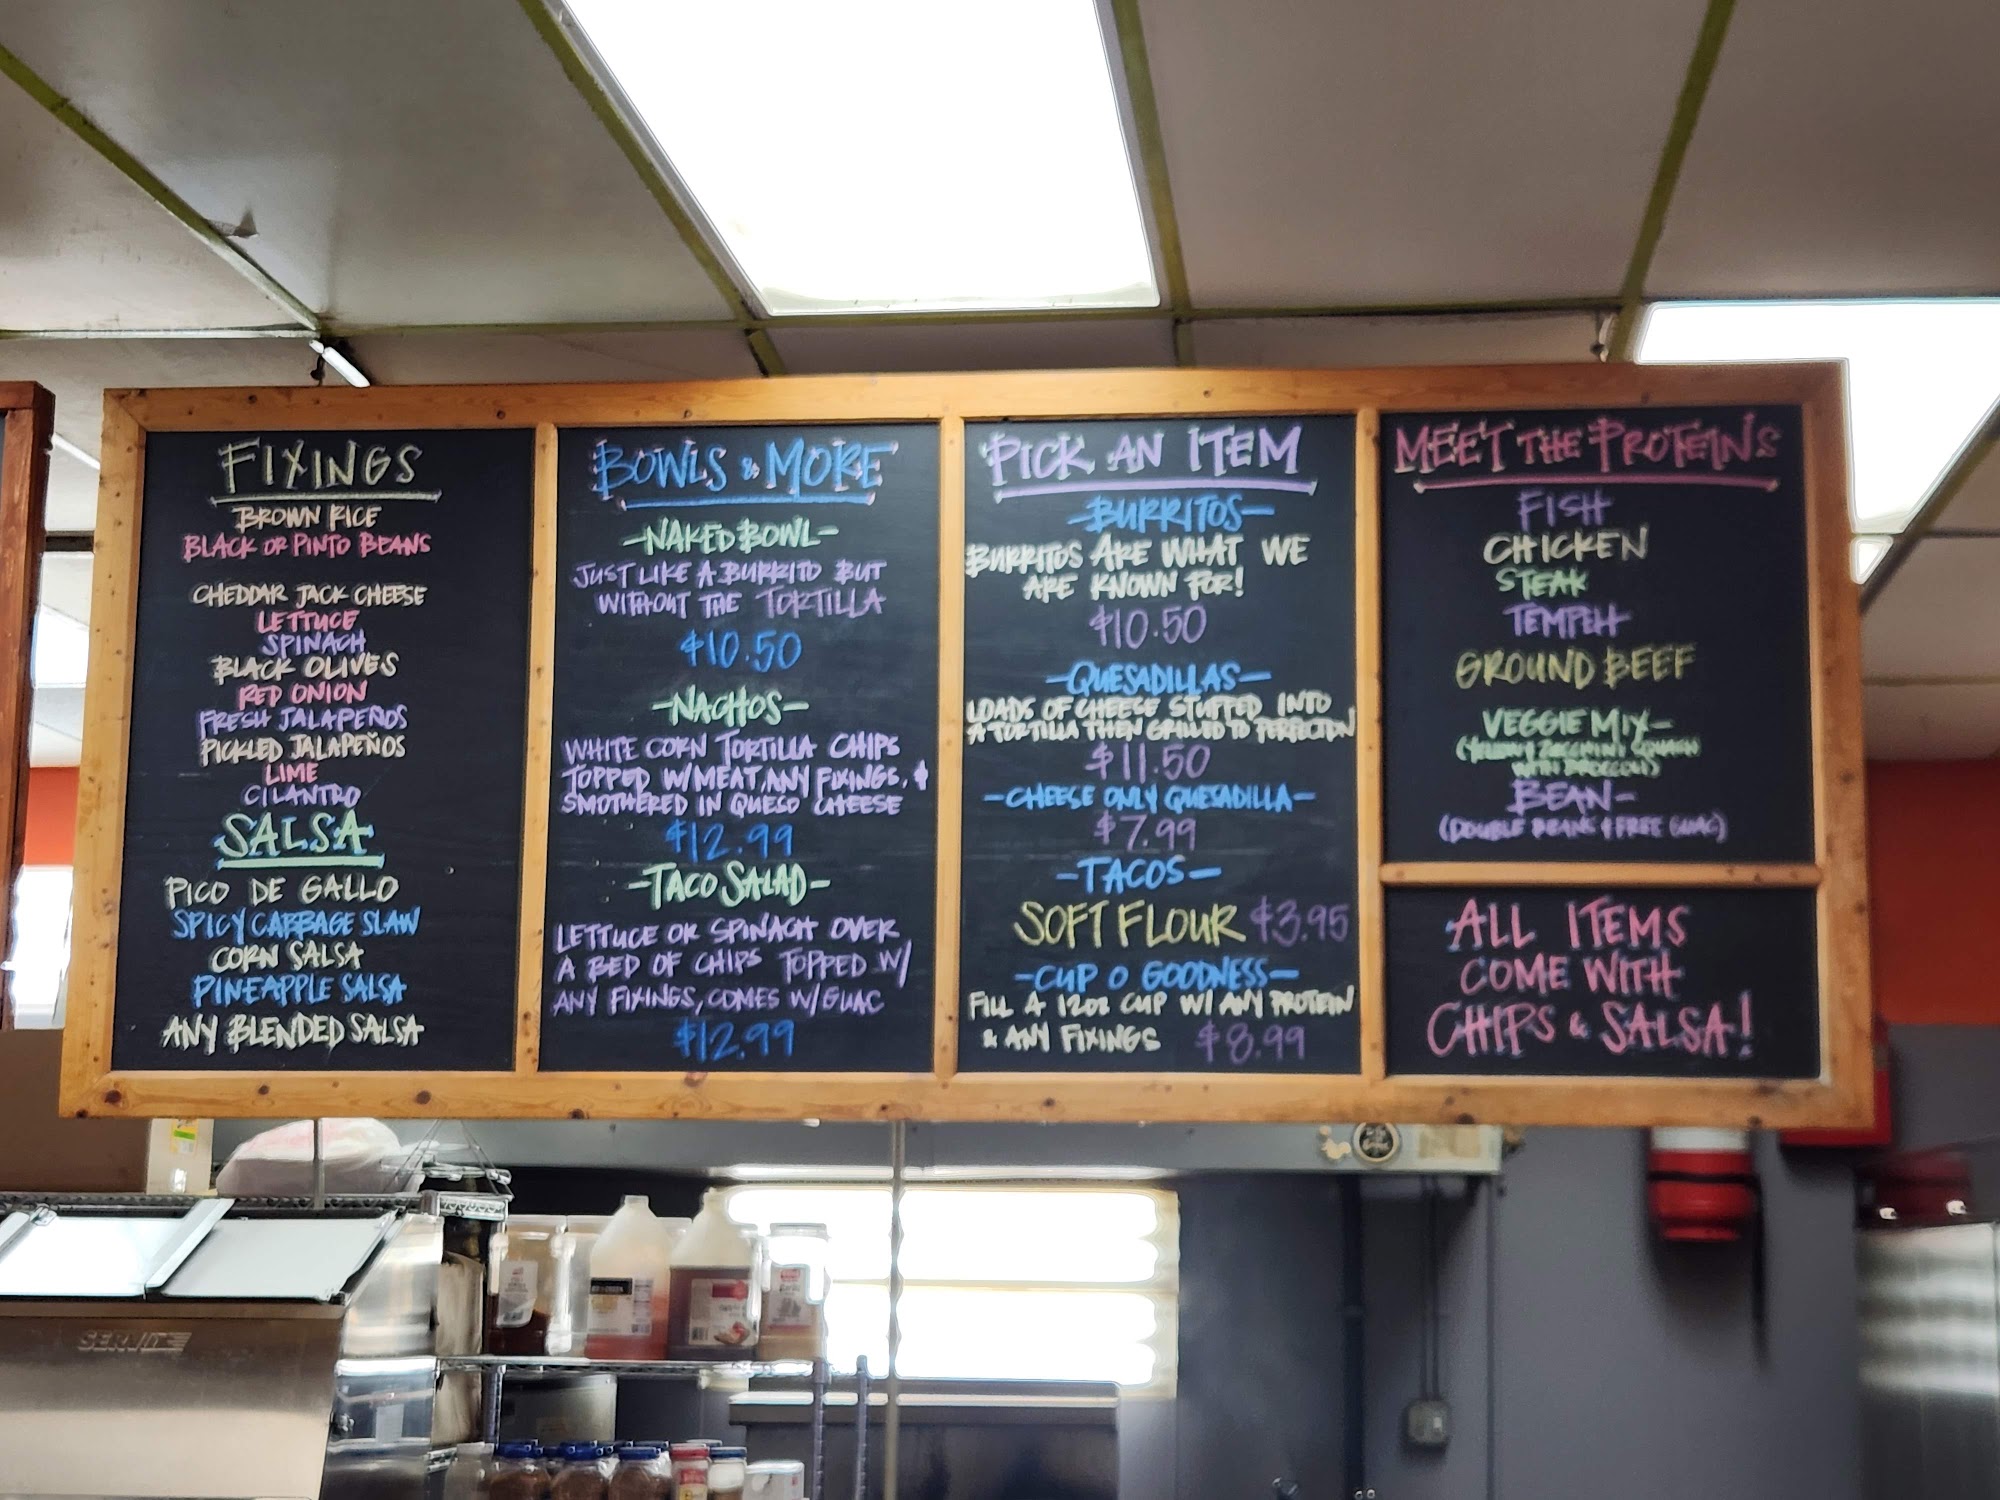 FIXINGS
BROWN RICE
BLACK OR PINTO BEANS
CHEDDAR JACK CHEESE
LETTUCE
SPINACH
BLACK OLIVES
RED ONION
FRESH JALAPEÑOS
PICKLED JALAPEÑOS
LIME
CILANTRO
SALSA
PICO DE GALLO
SPICY CABBAGE SLAW
CORN SALSA
PINEAPPLE SALSA
ANY BLENDED SALSA
BOWLS & MORE
-NAKED BOWL-
JUST LIKE A BURRITO BUT
WITHOUT THE TORTILLA
$10.50
-NACHOS-
WHITE CORN TORTILLA CHIPS
TOPPED W/MEAT, ANY FIXINGS, &
SMOTHERED IN QUESO CHEESE
$12.99
-TACO SALAD-
LETTUCE OR SPINACH OVER
A BED OF CHIPS TOPPED W/
ANY FIXINGS, COMES W/GUAC
$12.99
PICK AN ITEM
-BURRITOS-
BURRITOS ARE WHAT WE
ARE KNOWN FOR!
$10.50
-QUESADILLAS-
LOADS OF CHEESE STUFFED INTO
A TORTILLA THEN GRILLED TO PERFECTION
$11.50
-CHEESE ONLY QUESADILLA-
$7.99
-TACOS-
SOFT FLOUR $3.95
-CUP O GOODNESS-
FILL A 12oz CUP W/ ANY PROTEIN
& ANY FIXINGS $8.99
MEET THE PROTEINS
FISH
CHICKEN
STEAK
TEMPEH
GROUND BEEF
VEGGIE MIX-
(YELLOW ZUCCHINI SQUASH
WITH BROCCOLI)
BEAN-
(DOUBLE BEANS & FREE GUAC)
ALL ITEMS
COME WITH
CHIPS & SALSA!